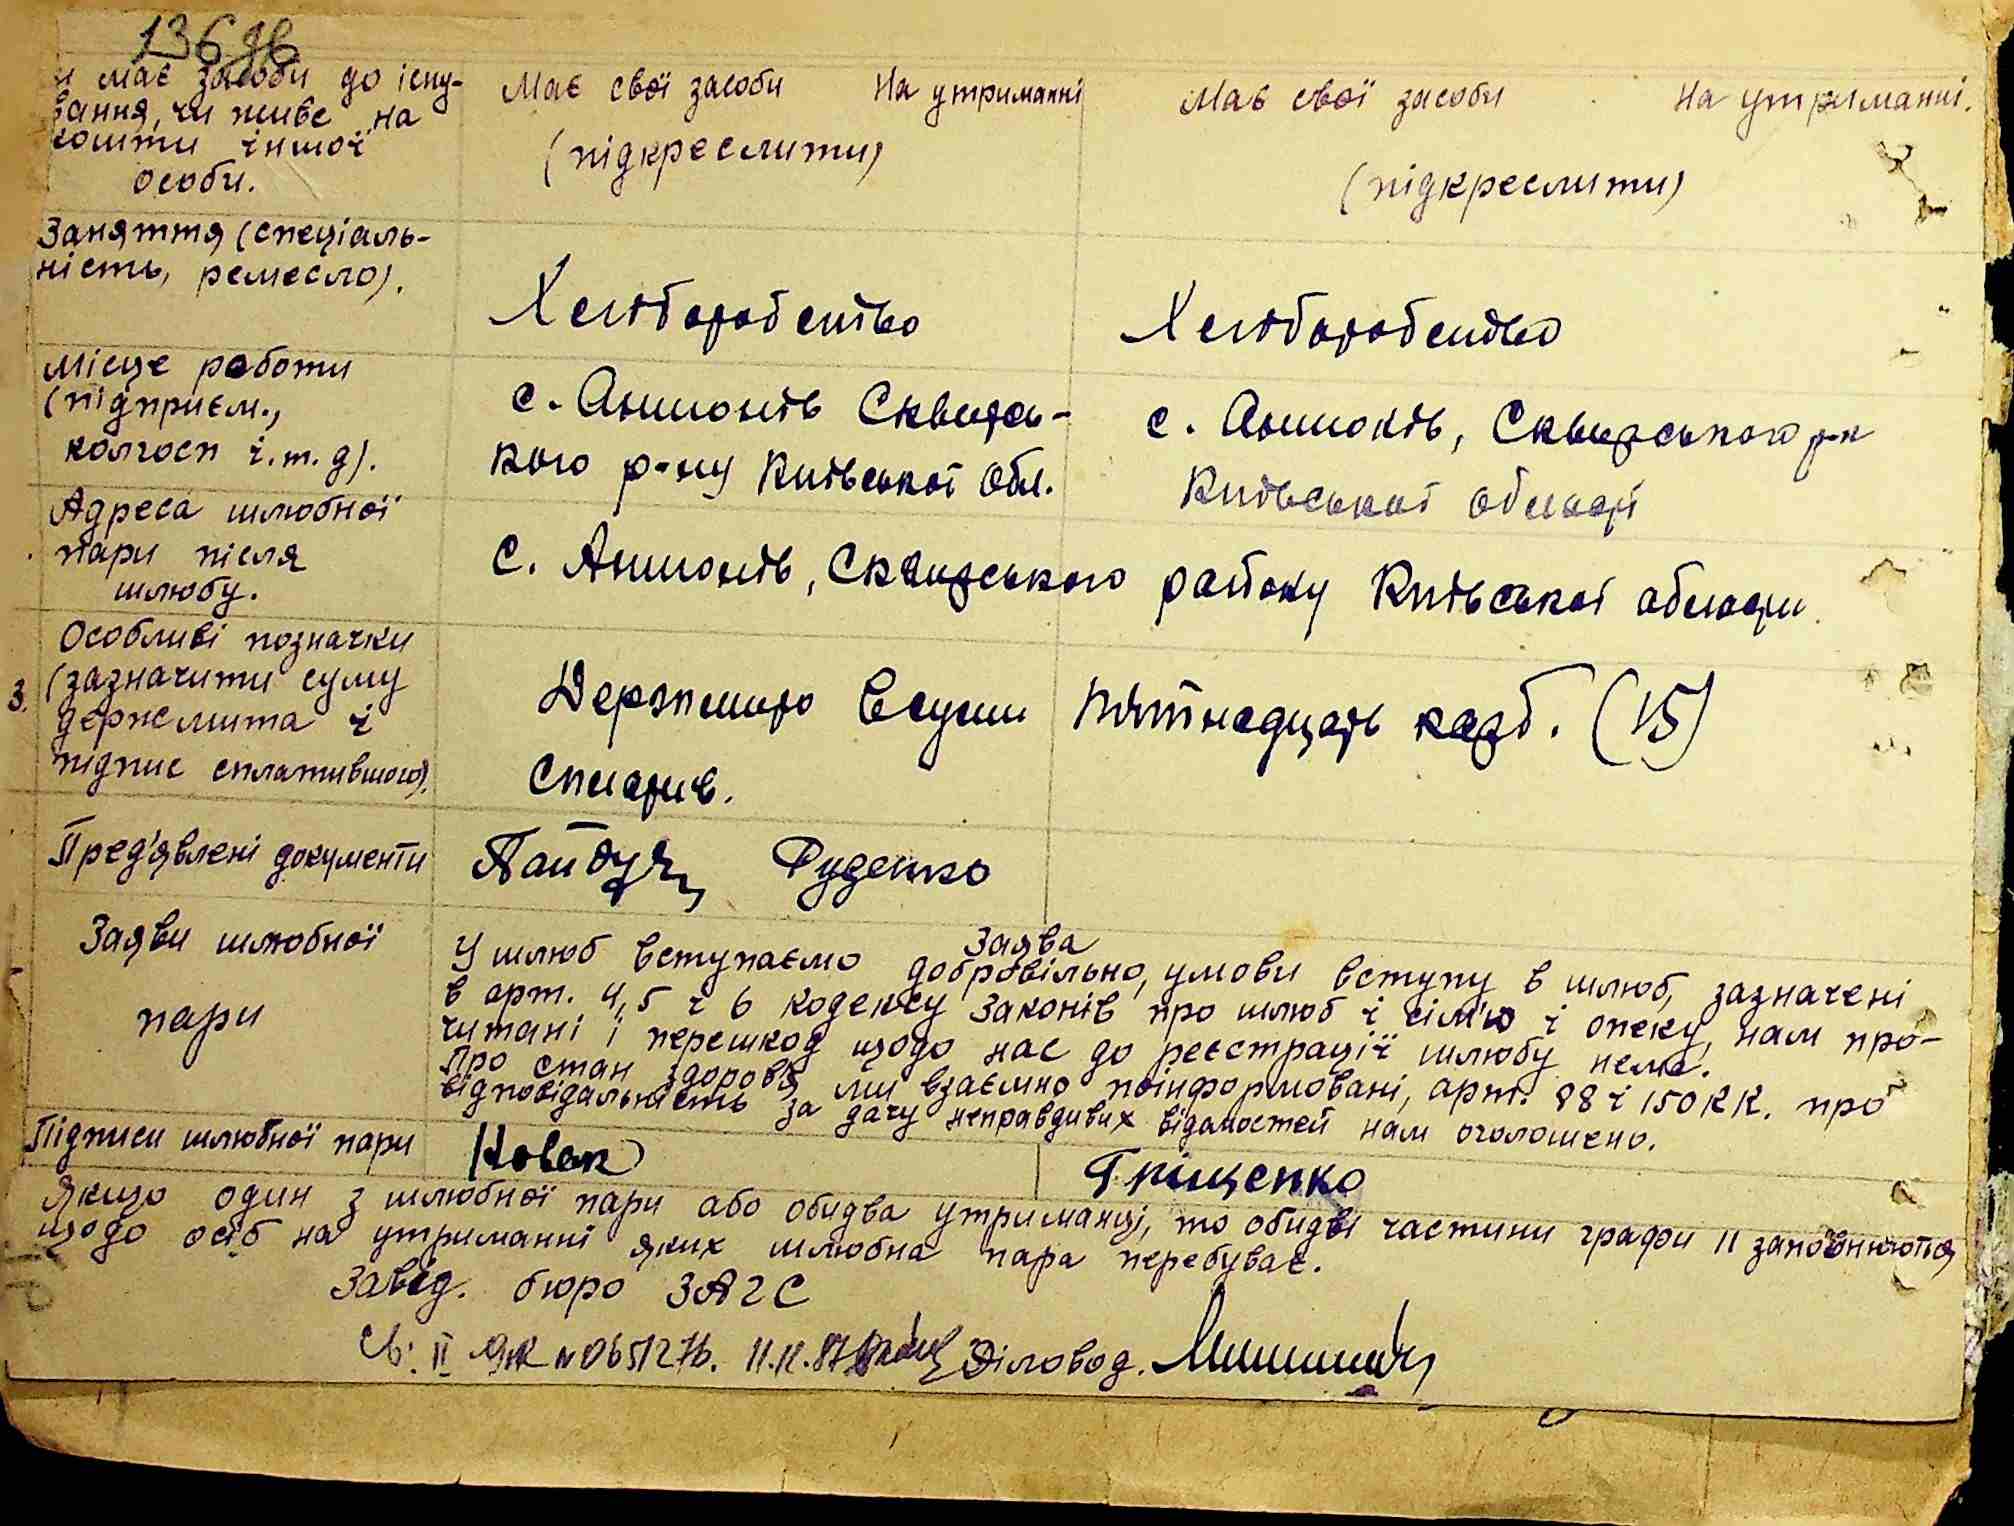 136 зв
и має засоби до існу-
вання, чи живе на
кошти іншої
особи.
Має свої засоби На утриманні
(підкреслити)
Має свої засоби На утриманні.
(підкреслити)
Заняття (спеціаль-
ність, ремесло).
Хліборобство
Хліборобство
Місце роботи
(підприєм.,
колгосп і.т.д).
с. Антонів Сквирсь-
кого р-ну Київської обл.
с. Антонів, Сквирського р-н
Київської області
Адреса шлюбної
пари після
шлюбу.
С. Антонів, Сквирського району Київської області
Особливі позначки
(зазначити суму
держмита і
підпис сплатившого).
3.
Держмито в суми п'ятнадцять карб. (15)
Сплатив.
Пред'явлені документи
Руденко
Заяви шлюбної
пари
Заява
У шлюб вступаємо добровільно, умови вступу в шлюб, зазначені
в арт. 4,5 і 6 кодексу законів про шлюб і сім'ю і опеку, нам про-
читані і перешкод щодо нас до реєстрації шлюбу нема.
Про стан здоров'я ми взаємно поінформовані, арт. 88 і 150 КК. про
відповідальність за дачу неправдивих відомостей нам оголошено.
Підписи шлюбної пари
Новак
Гріщенко
Якщо один з шлюбної пари або обидва утриманці, то обидві частини графи 11 заповнюються
щодо осіб на утриманні яких шлюбна пара перебуває.
Завід. бюро ЗАГС
Св: II № 065127 Діловод.